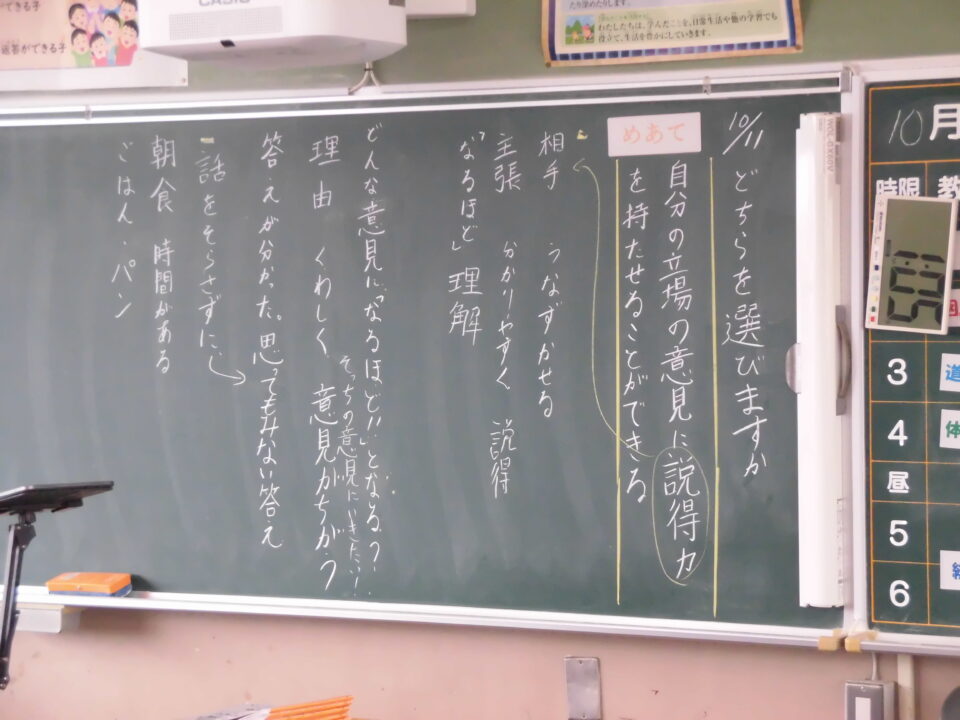 10/11 どちらを選びますか
めあて
自分の立場の意見に説得力
を持たせることができる
相手 うなずかせる
主張 分かりやすく 説得
「なるほど」理解
どんな意見に「なるほど!!」となる?
そっちの意見にいきたい!
理由 くわしく 意見がちがう
答えが分かった。思ってもみない答え
話をそらさずに、
朝食 時間がある
ごはん・パン
返答ができる子
CASIO
わたしたちは、学んだことを、日常生活や他の学習でも
役立て、生活を豊かにしていきます。
10月
時限
3
4
昼
5
6
道
体